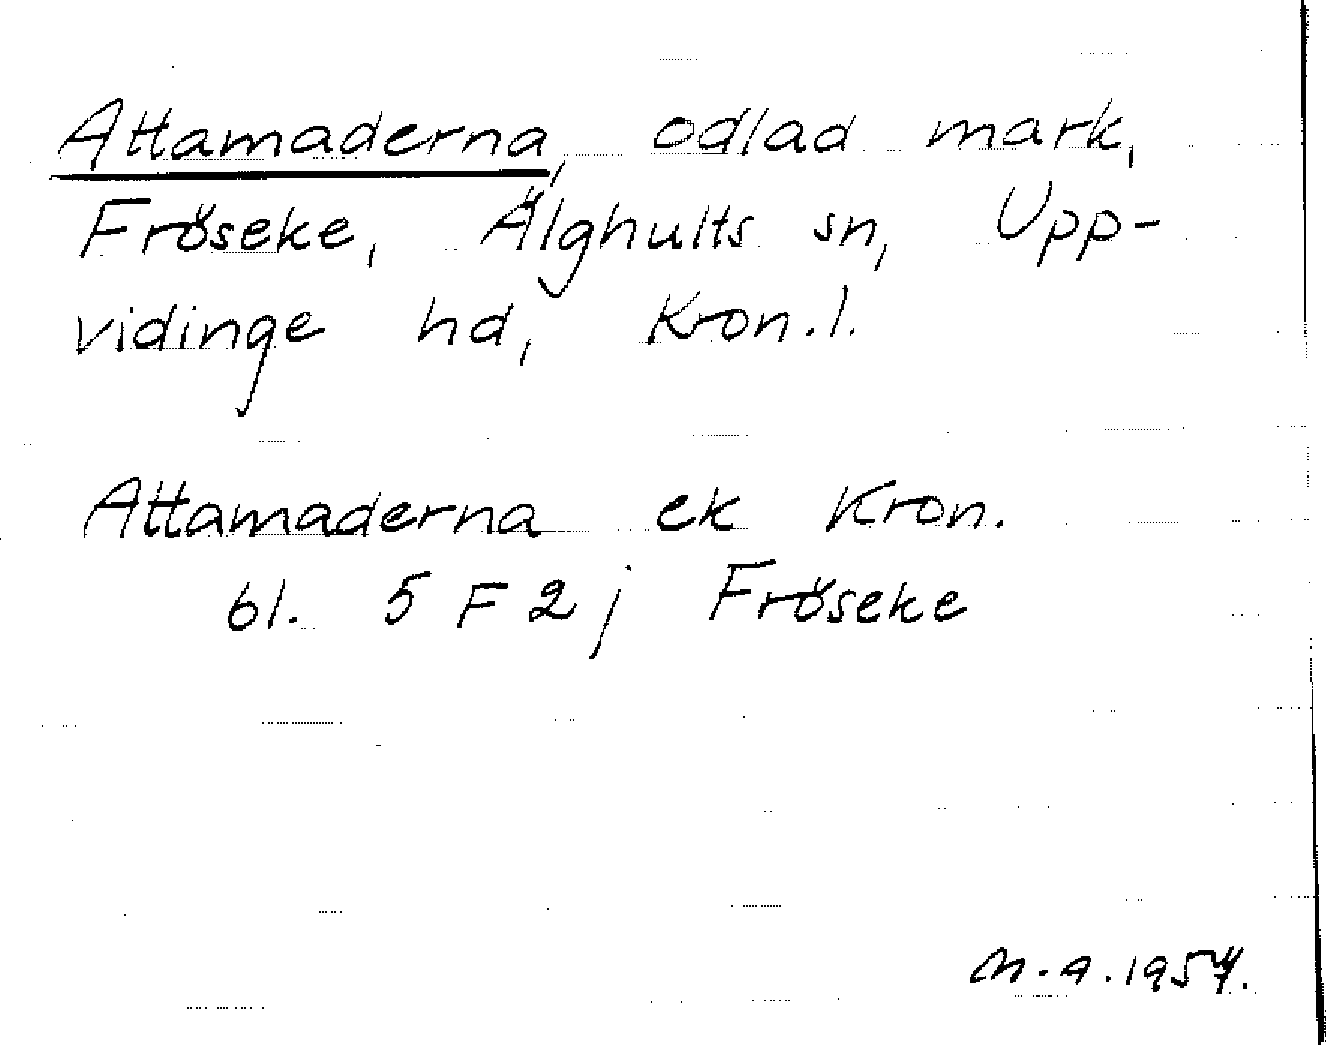 Attamaderna, odlad mark,
Fröseke, Älghults sn, Upp-
vidinge hd, Kron.l.
Attamaderna ek Kron.
bl. 5 F 2 j Fröseke
M.A.1954.